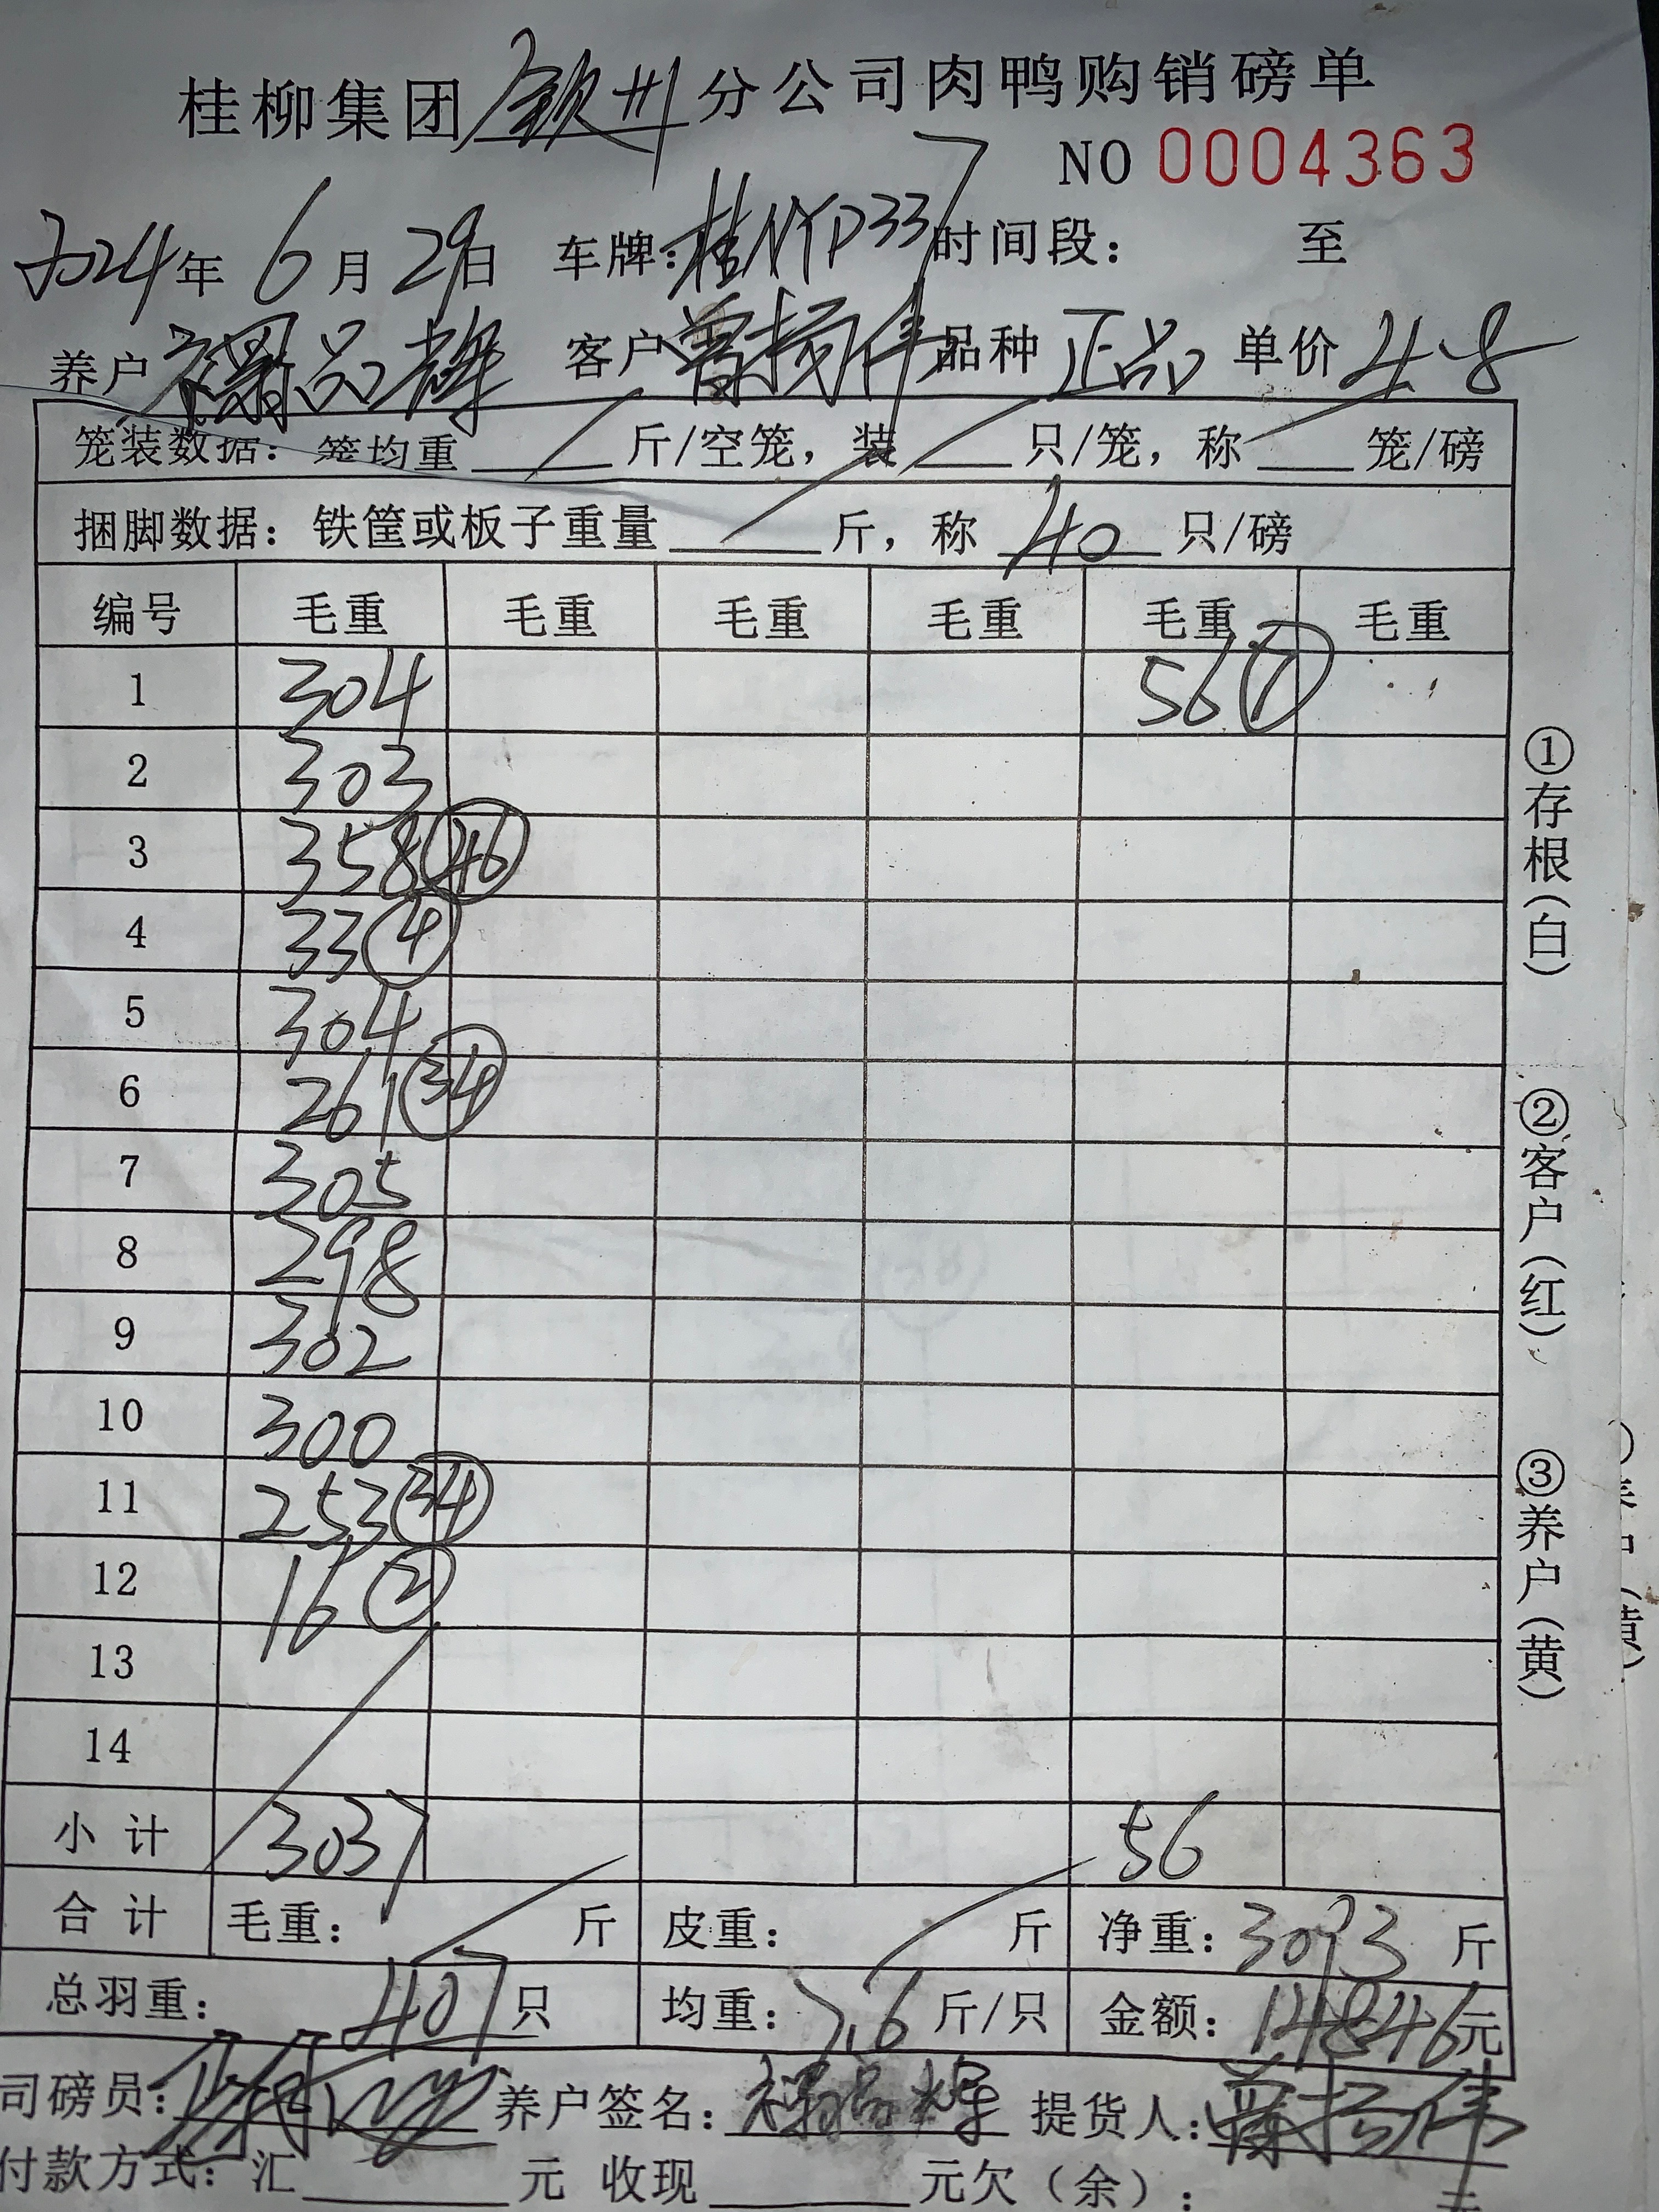 桂柳集团钦州分公司肉鸭购销磅单
NO 0004363
2024年6月29日 车牌:桂NYP337 时间段: 至
养户 禤品辉 客户 曾扬伟 品种 正品 单价 4.8
笼装数据: 笼均重 斤/空笼, 装 只/笼, 称 笼/磅
捆脚数据: 铁筐或板子重量 斤, 称 40 只/磅
编号 毛重 毛重 毛重 毛重 毛重 毛重
1 304 56 ⑦
2 303
3 358 ㊻
4 33 ④
5 304
6 261 ㉞
7 305
8 298
9 302
10 300
11 253 ㉞
12 16 ②
13
14
小计 3037 56
合计 毛重: 斤 皮重: 斤 净重: 3093 斤
总羽重: 407 只 均重: 7.6 斤/只 金额: 14846元
司磅员: 养户签名: 禤品辉 提货人: 曾扬伟
付款方式: 汇 元 收现 元欠(余): 元
①存根(白)
②客户(红)
③养户(黄)